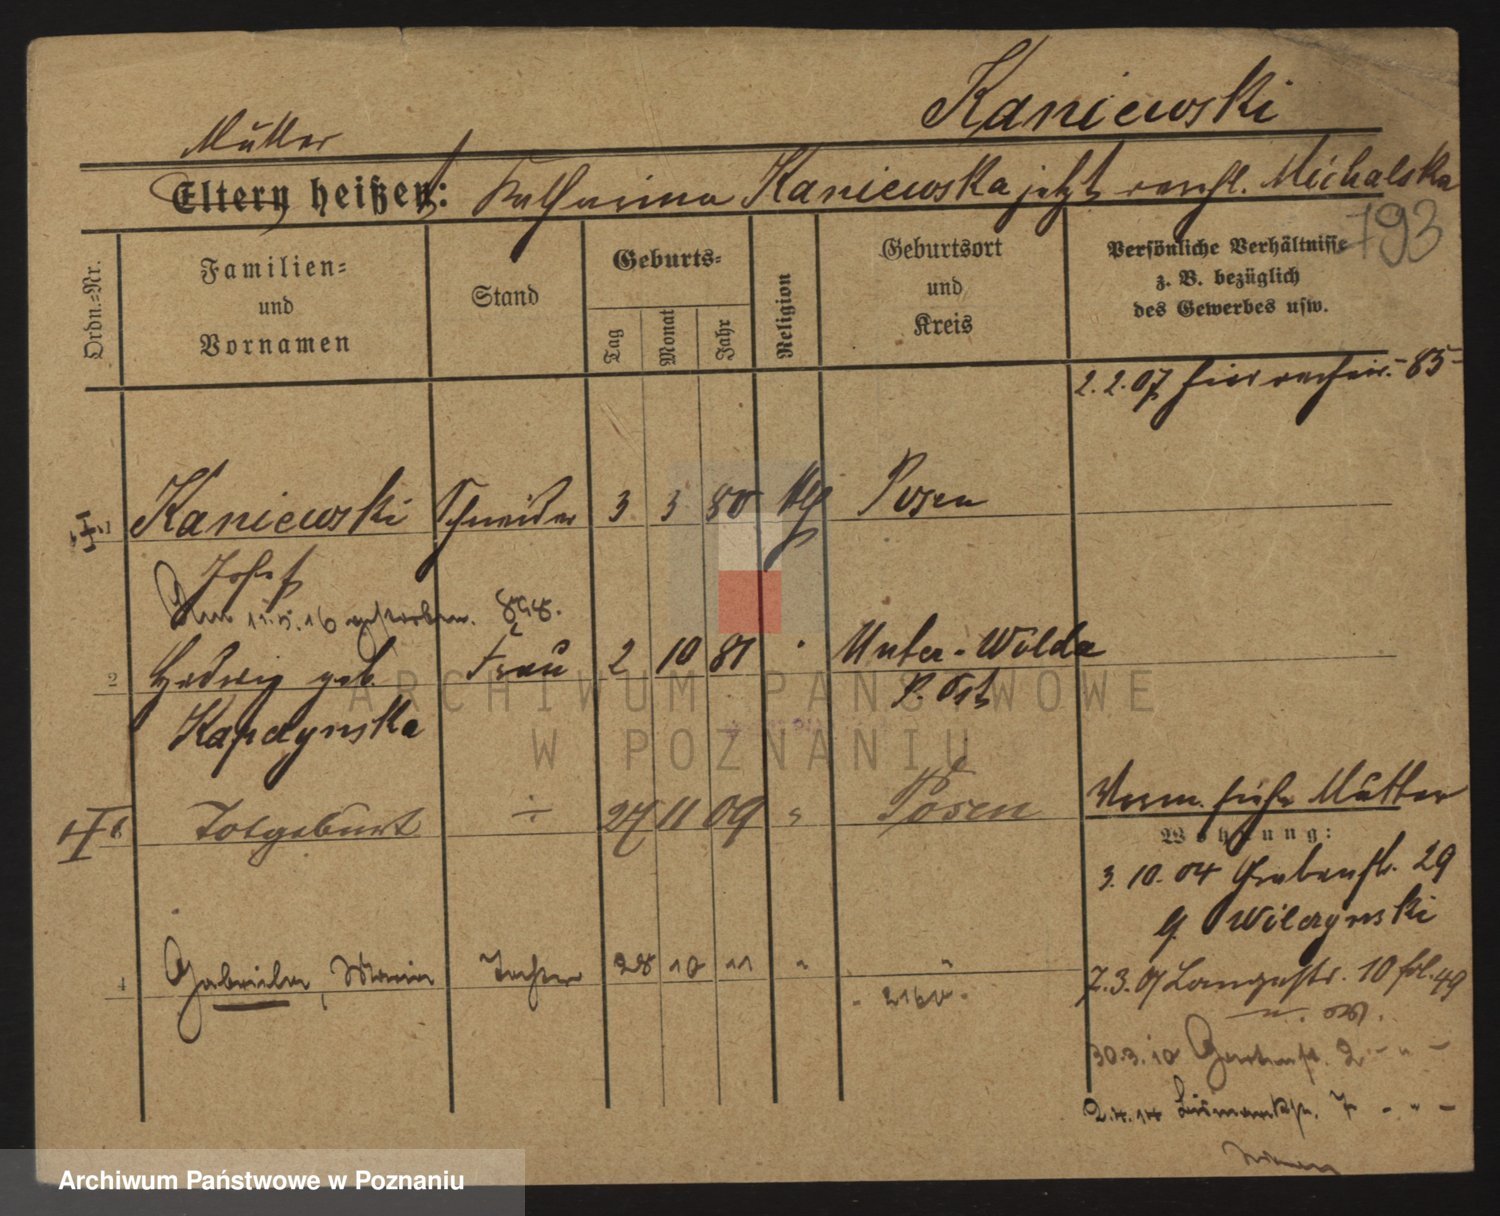 Kaniewski
Mutter
Eltern heißen: Katharina Kaniewska jetzt verehl. Michalska
793
Ordn.-Nr.
Familien-
und
Vornamen
Stand
Geburts-
Tag
Monat
Jahr
Religion
Geburtsort
und
Kreis
Persönliche Verhältnisse
z. B. bezüglich
des Gewerbes usw.
2. 2. 07 hier 85
Kaniewski Schneider 3 3 80 kth Posen
Josef
Am 11.5.16 gestorben.
2 Hedwig geb Frau 2 10 81 Unter-Wilda
Kapczynska P. Ost
Totgeburt ÷ 27 11 09 " Posen
Verm. siehe Mutter
Wohnung:
3. 10. 04 Grabenstr. 29
Wilczynski
4 Gabriela, Maria Tochter 28 10 11 " "
2160
7. 3. 07 Langestr. 10 fol. 49
30.3.10 Gartenstr. 2 - " -
2.4.14 Bismarckstr. 7 - " -
ARCHIWUM PAŃSTWOWE
W POZNANIU
Archiwum Państwowe w Poznaniu